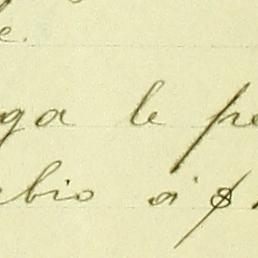 e.
ga le pe
bio á $